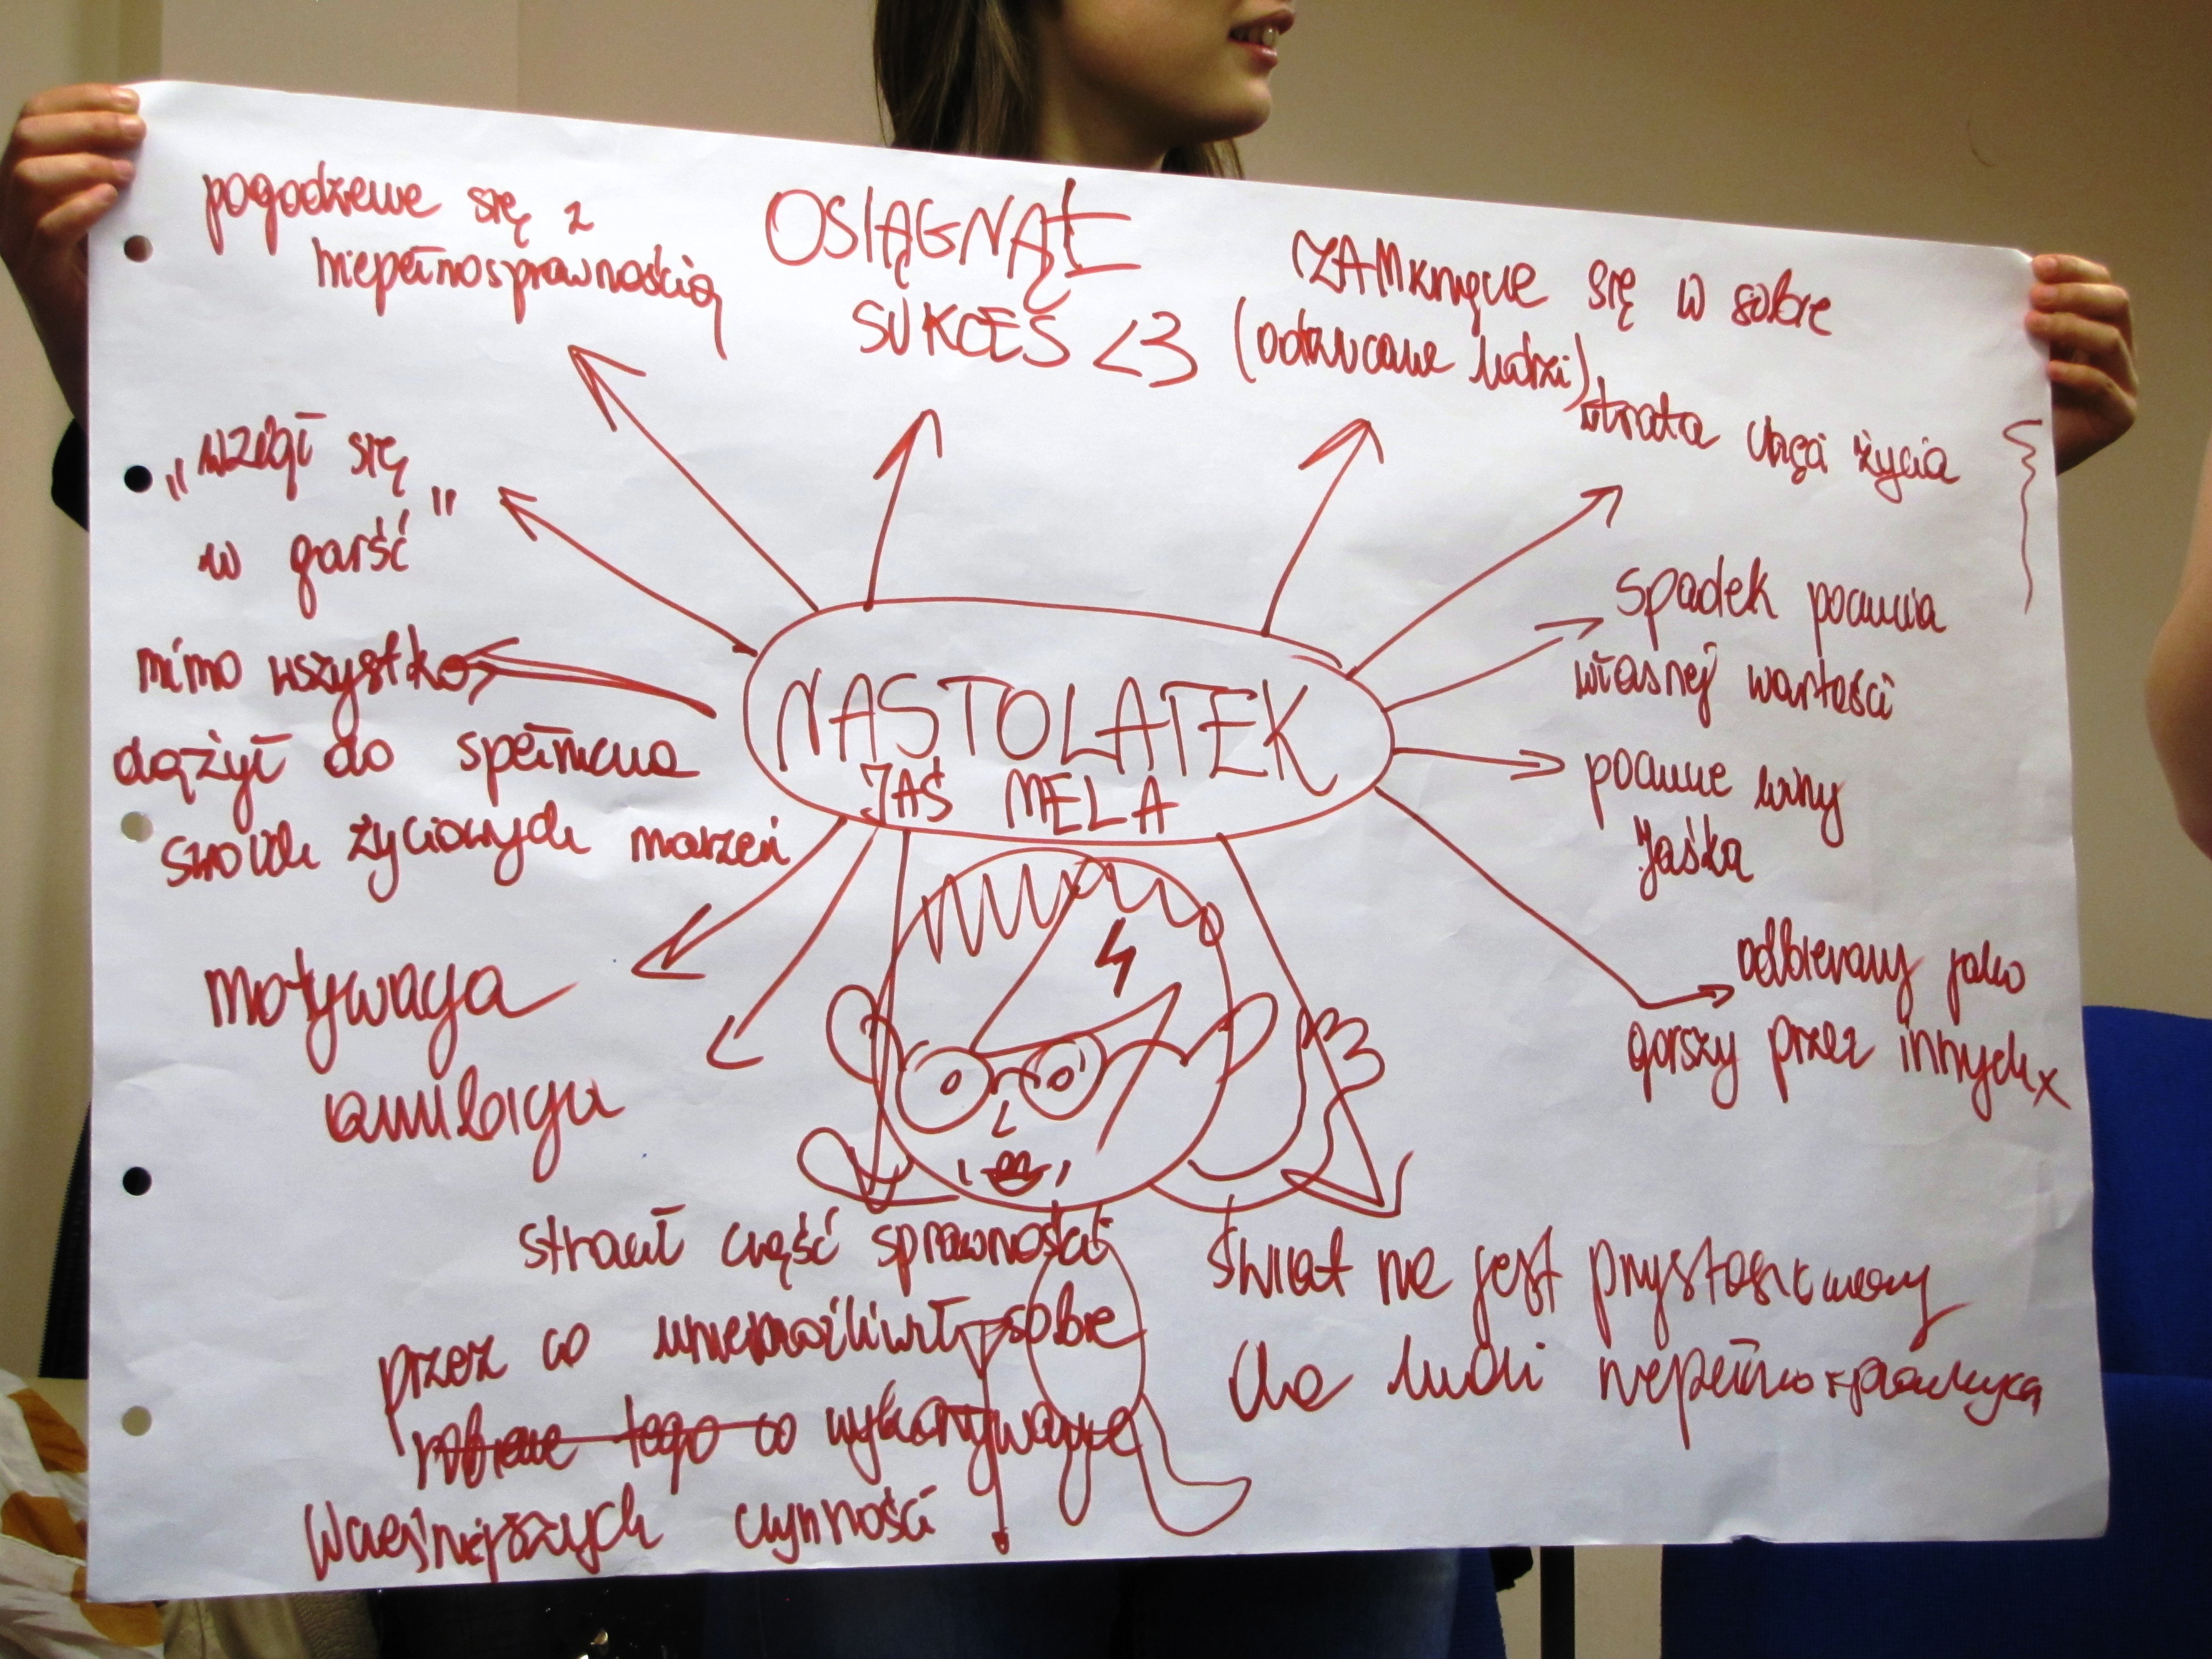 pogodzenie się z
niepełnosprawnością
OSIĄGNĄŁ
SUKCES <3
ZAMknięcie się w sobie
(odrzucanie ludzi),
utrata chęci życia
„wziął się
w garść"
mimo wszystko,
dążył do spełnienia
swoich życiowych marzeń
spadek poczucia
własnej wartości
poczucie winy
Jaśka
NASTOLATEK
JAŚ MELA
motywacja
odbierany jako
gorszy przez innych x
stracił część sprawności
przez co uniemożliwił sobie
robienie tego co wykonywanie
wcześniejszych czynności
Świat nie jest przystosowany
dla ludzi